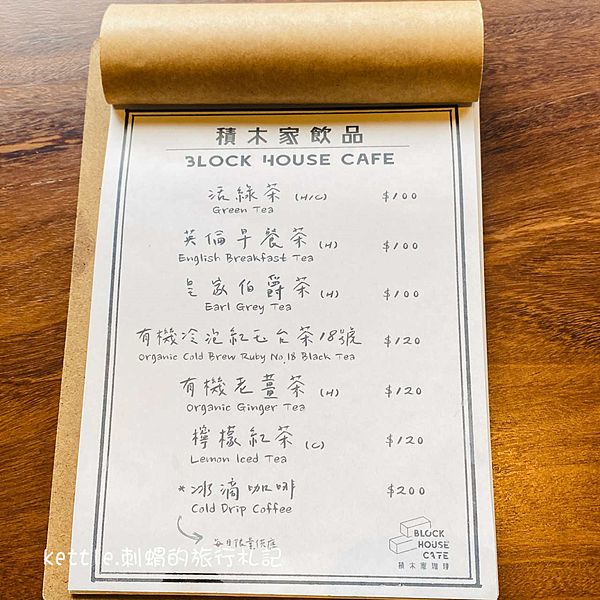 積木家飲品
BLOCK HOUSE CAFE
活綠茶 (H/C) $100
Green Tea
英倫早餐茶 (H) $100
English Breakfast Tea
皇家伯爵茶 (H) $100
Earl Grey Tea
有機冷泡紅玉台茶18號 $120
Organic Cold Brew Ruby No.18 Black Tea
有機老薑茶 (H) $120
Organic Ginger Tea
檸檬紅茶 (C) $120
Lemon Iced Tea
*冰滴咖啡 $200
Cold Drip Coffee
每日限量供應
BLOCK
HOUSE
CAFE
積木家珈琲
kettle.刺蝟的旅行札記